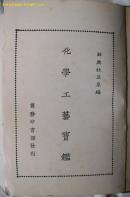 紹興杜亞泉編
化學工藝寶鑑
商務印書館發行